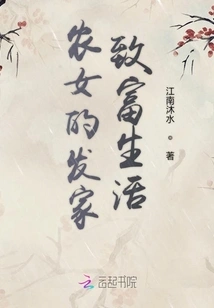 农女的发家
致富生活
江南沐水
著
云起书院